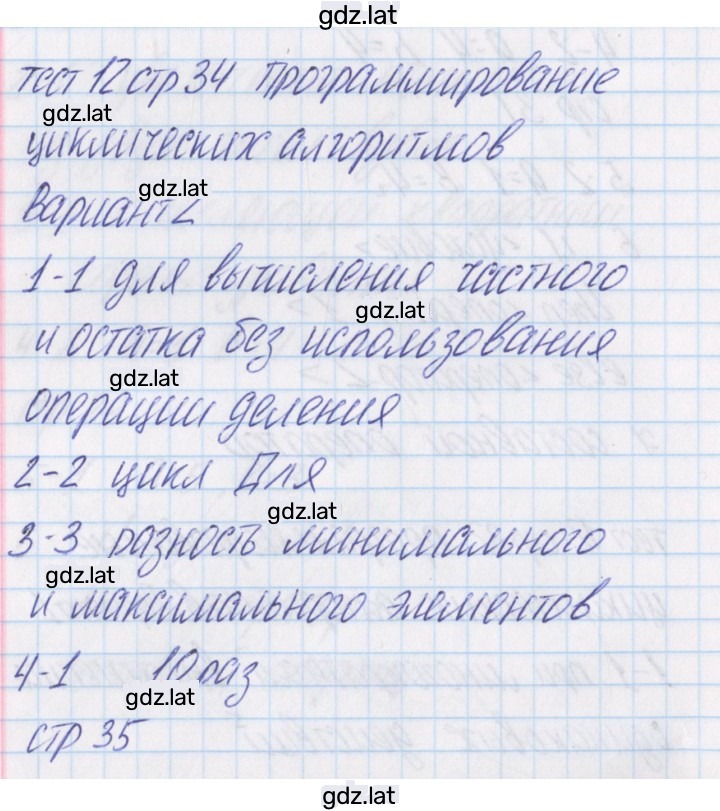 gdz.lat
тест 12 стр 34 программирование
gdz.lat
циклических алгоритмов
gdz.lat
Вариант 2
1-1 для вычисления частного
gdz.lat
и остатка без использования
gdz.lat
операции деления
2-2 цикл Для
gdz.lat
3-3 разность минимального
gdz.lat
и максимального элементов
4-1 10 раз
gdz.lat
стр 35
gdz.lat